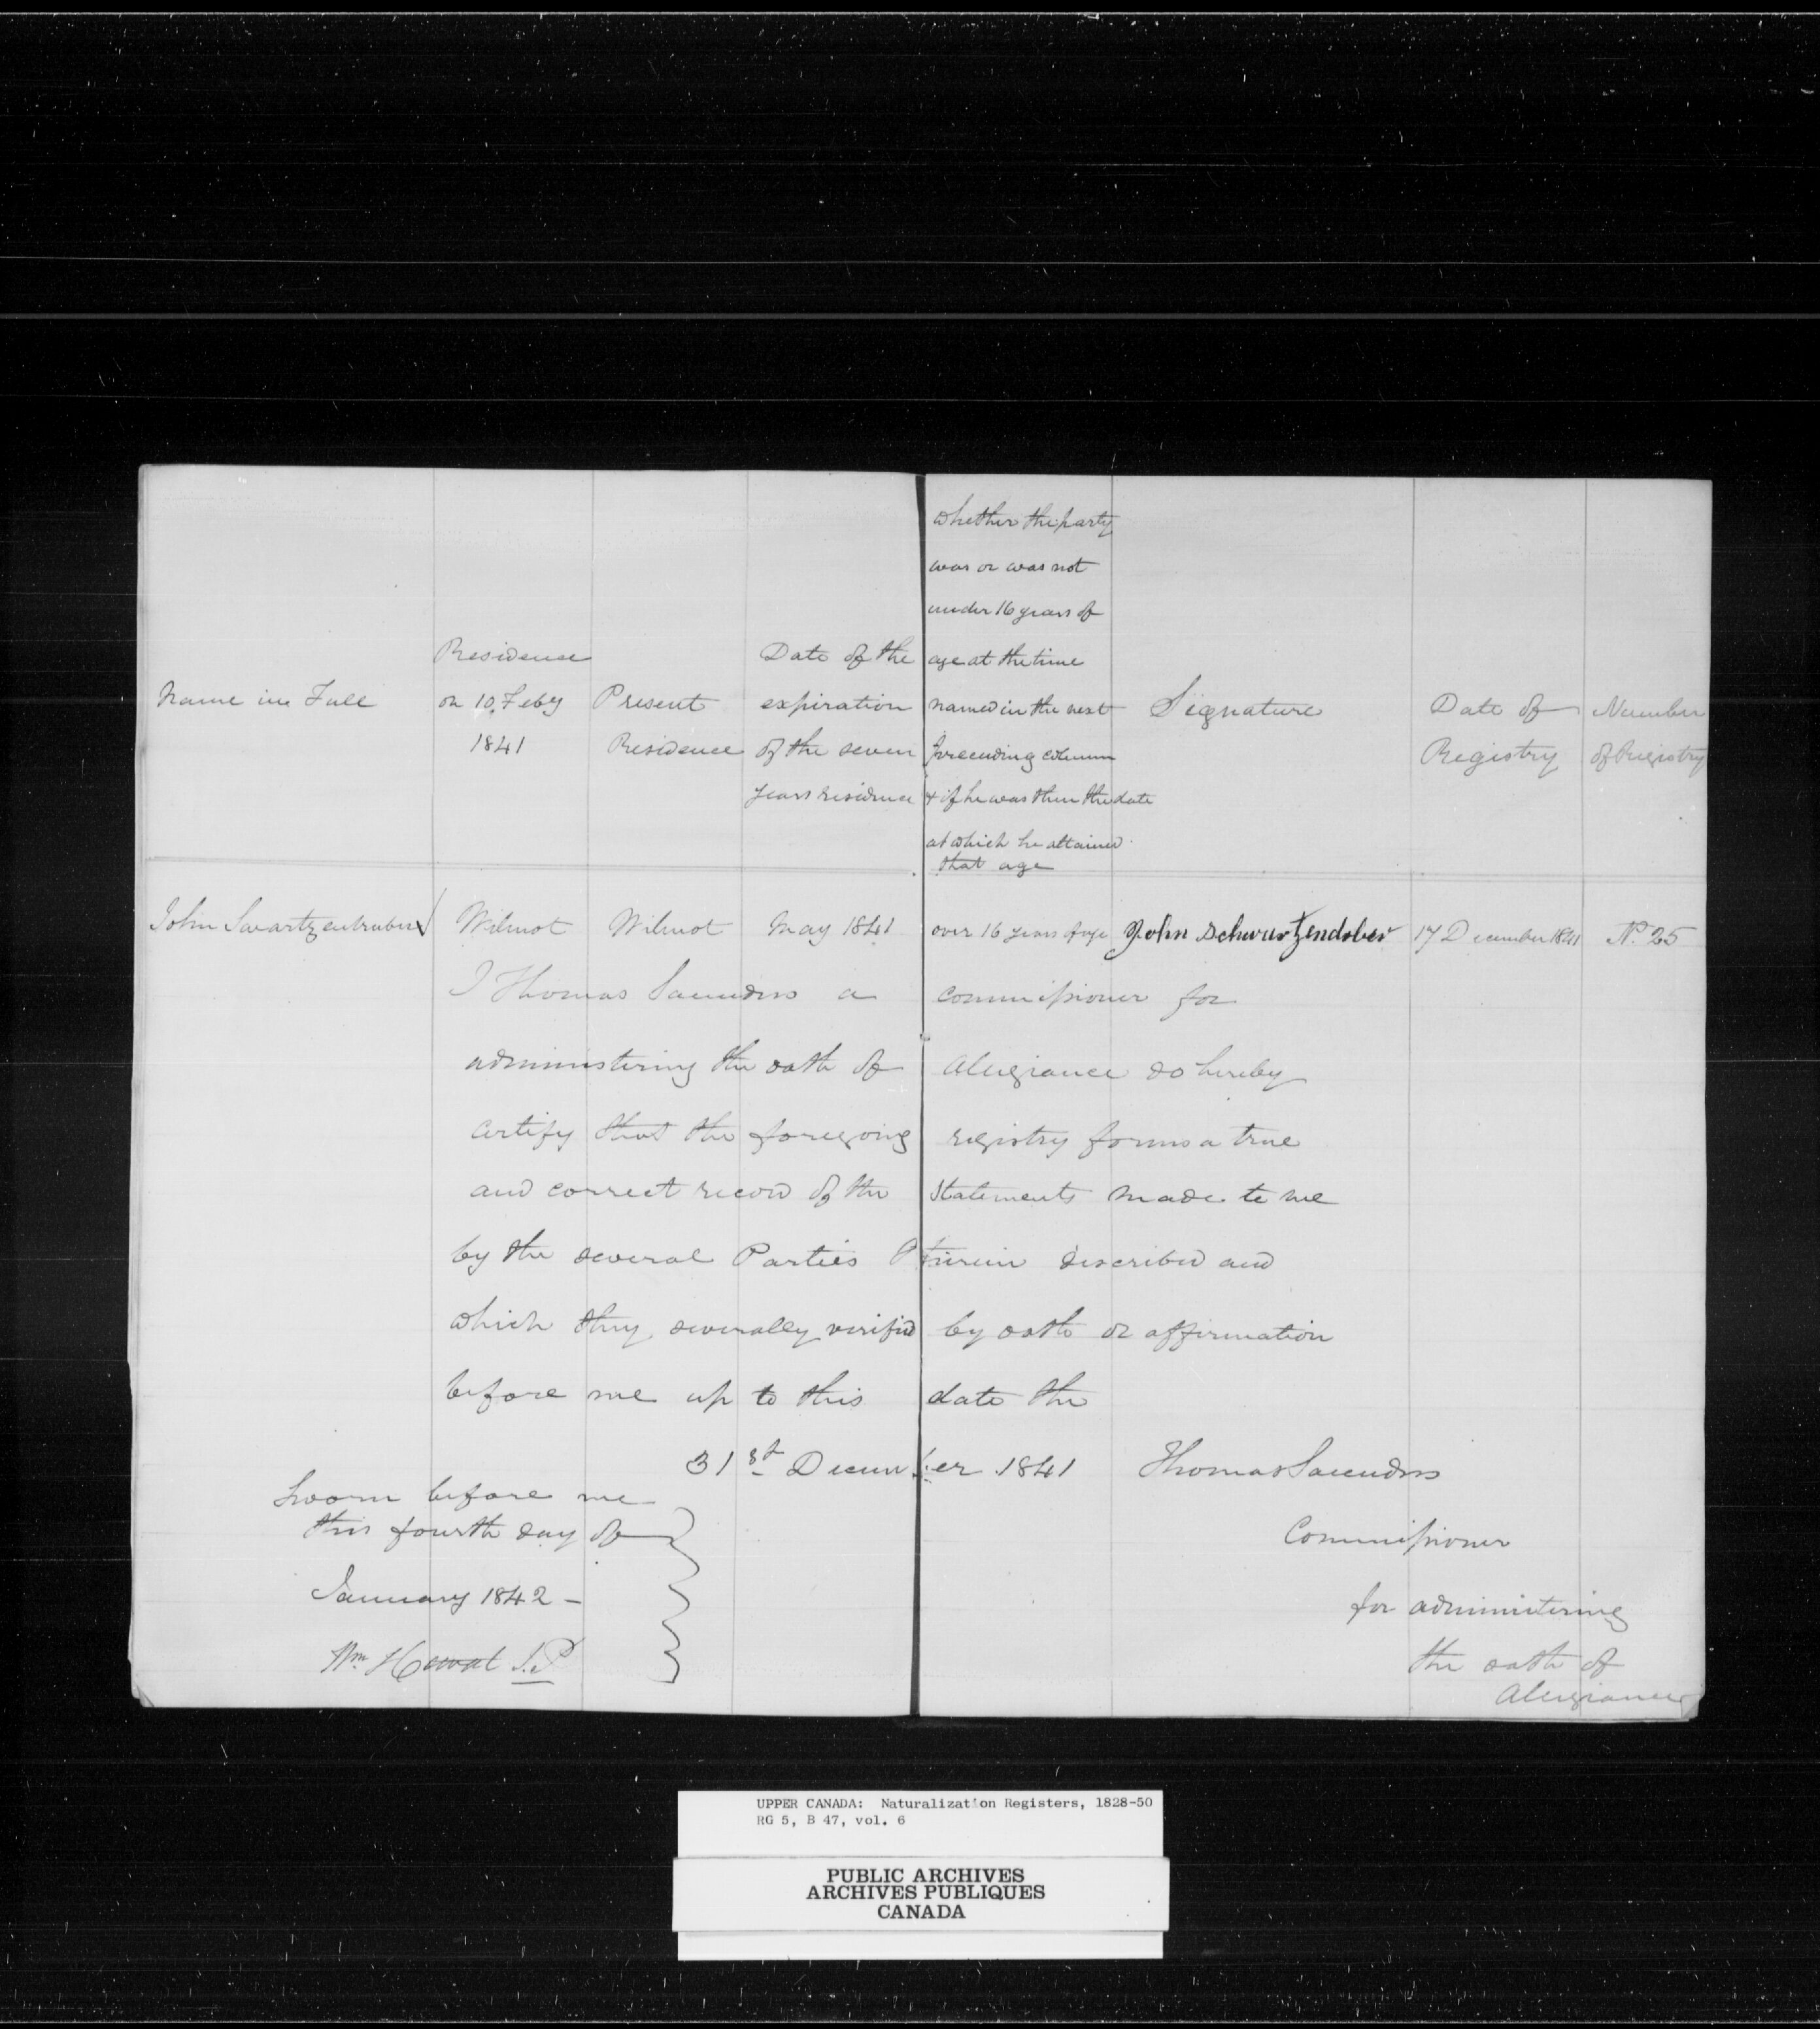 Name in Full
Residence
on 10 Feby
1841
Present
Residence
Date of the
expiration
of the seven
years residence
whether the party
was or was not
under 16 years of
age at the time
named in the next
preceeding column
& if he was then the date
at which he attained
that age
Signature
Date of
Registry
Number
of Registry
John Swartzentruber Wilmot Wilmot May 1841 over 16 years of age John Schwartzendober 17 December 1841 No. 25
I Thomas Saunders a commissioner for
administering the oath of Alegiance do hereby
certify that the foregoing registry forms a true
and correct record of the statements made to me
by the several Parties therein described and
which they severally verified by oath or affirmation
before me up to this date the
31st December 1841 Thomas Saunders
Commissioner
for administering
the oath of
Alegiance
Sworn before me
this fourth day of
January 1842 -
Wm Howat J.P
UPPER CANADA: Naturalization Registers, 1828-50
RG 5, B 47, vol. 6
PUBLIC ARCHIVES
ARCHIVES PUBLIQUES
CANADA